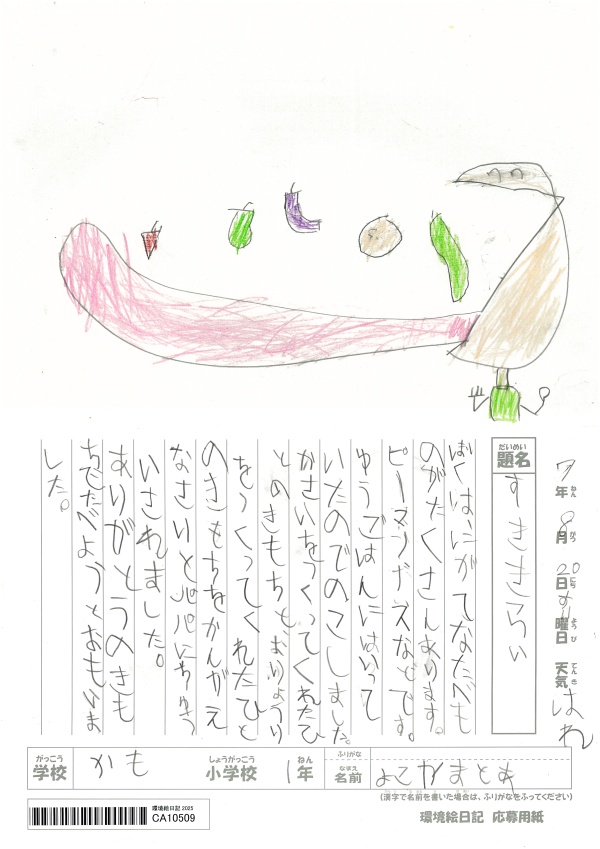 7年 8月 20日 すい曜日 天気 はれ
ねん がつ にち ようび てんき
だいめい
題名 すききらい
ぼくは、にがてなたべも
のがたくさんあります。
ピーマンナスなどです。
ゆうごはんにはいって
いたのでのこしました。
かさいをつくってくれたひ
とのきもちとおりょうり
をつくってくれたひと
のきもちをかんがえ
なさいとパパにちゅう
いされました。
ありがとうのきも
ちでたべようとおもいま
した。
がっこう しょうがっこう ねん ふりがな なまえ
学校 かも 小学校 1年 名前 よこがまとあ
(漢字で名前を書いた場合は、ふりがなをふってください)
環境絵日記 応募用紙
環境絵日記 2025
CA10509